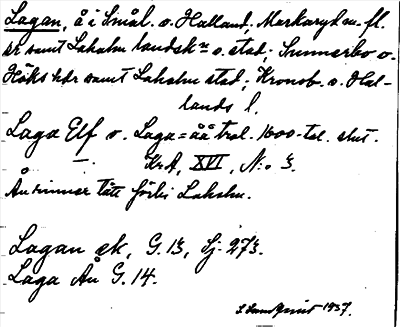 Lagan, å i Smål. o. Halland; Markaryd m. fl.
sr samt Laholm landskn o. stad; Sunnerbo o.
Höks hdr samt Laholm stad; Kronob. o. Hal-
lands l.
Laga Elf o. Laga=åå trol. 1600-tal. slut.
— KrA, XVI, N:o 3.
Ån rinner tätt förbi Laholm.
Lagan ek, G. 13, Sj. 273.
Laga Ån G. 14.
Sundquist 1937.